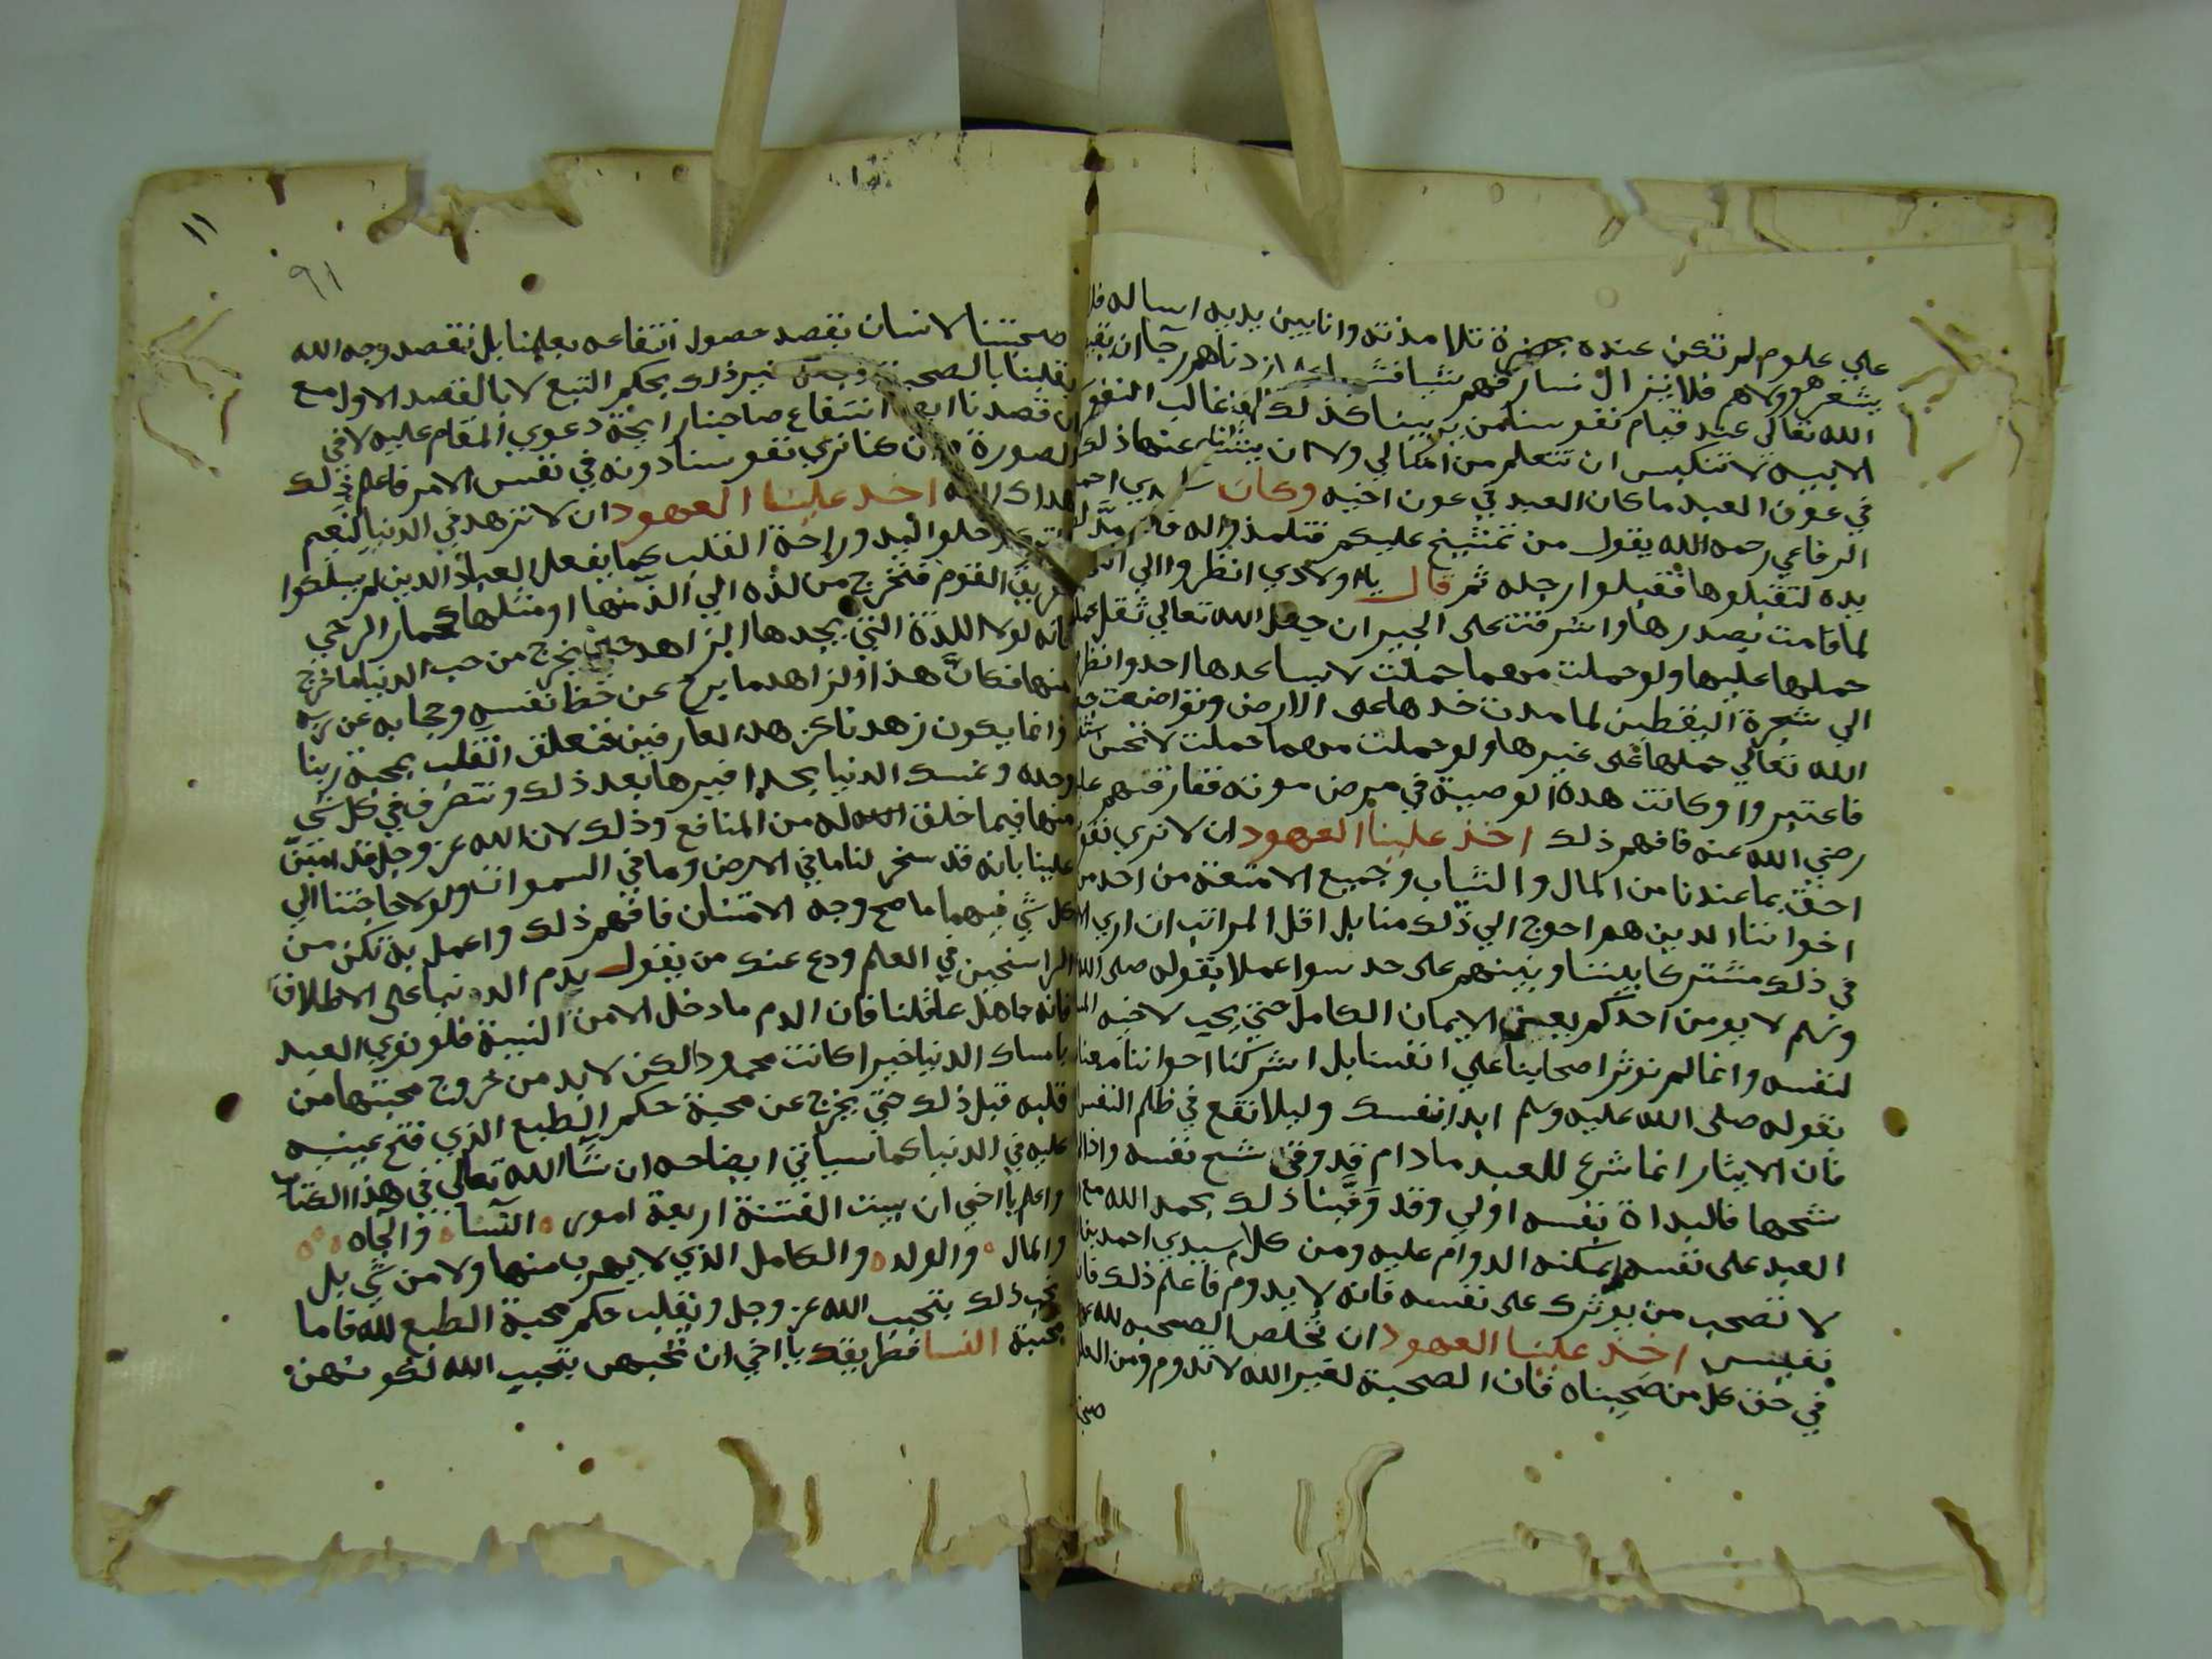 علي علوم لم تكن عنده بحضرة تلامذته وانا بين يديه اساله فلا
يشعر هو ولا هم فلا يزال نسارقهم شيا فشيا
الله تعالي عند قيام نفوسنا من يربينا كذلك فان غالب النفوس
الابيه لا تنكبس ان تتعلم من امثالي ولا ان ينشانا عنها ذلك
في عون العبد ما كان العبد في عون اخيه وكان سيدي احمد
الرفاعي رحمه الله يقول من تمشيخ عليكم فتلمذوا له فان مد لكم
يده لتقبلوها فقبلوا رجله ثم قال يا اولادي انظروا الي
لما قامت بصدرها واشرفت علي الجيران جعل الله تعالي ثقل حملها
حملها عليها ولو حملت مهما حملت لا يساعدها احد وانظروا
الي شجرة اليقطين لما مدت خدها علي الارض وتواضعت جعل
الله تعالي حملها علي غيرها ولو حملت مهما حملت لا تحس به
فاعتبروا وكانت هذه الوصية في مرض موته ففارقهم عليها
رضي الله عنه فافهم ذلك اخذ علينا العهود ان لا نري نفوسنا
احق بما عندنا من المال والثياب وجميع الامتعة من احد من
اخواننا الذين هم احوج الي ذلك منا بل اقل المراتب ان اري
في ذلك مشتركا بيننا وبينهم علي حد سوا عملا بقوله صلي الله
وسلم لا يومن احدكم يعني الايمان الكامل حتي يحب لاخيه ما
لنفسه وانما لم نوثر اصحابنا علي انفسنا بل اشركنا اخواننا معنا
بقوله صلي الله عليه وسلم ابدا بنفسك وليلا نقع في ظلم النفس
فان الايثار انما شرع للعبد مادام قد وقي شح نفسه واذا
شحها فالبداة بنفسه اولي وقد وقينا ذلك بحمد الله مع
العبد علي نفسه يمكنه الدوام عليه ومن كلام سيدي احمد
لا تصحب من يوثرك علي نفسه فانه لا يدوم فاعلم ذلك فانه
نفيس اخذ علينا العهود ان نخلص الصحبه لله
في حق كل من صحبناه فان الصحبة لغير الله لا تدوم ومن
صحبتنا لانسان بقصد حصول انتفاعه بعلمنا بل نقصد وجه الله
بقلبنا بالصحبة غير ذلك بحكم التبع لا بالقصد الاول مع
ان قصدنا انتفاع صاحبنا رايحة دعوي المقام عليه لا في
الصورة وان كنا نري نفوسنا دونه في نفس الامر فاعلم ذلك
هداك الله اخذ علينا العهود ان لا نزهد في الدنيا لنعيم
خلو اليد وراحة القلب كما يفعل العباد الذين لم يسلكوا
طريق القوم فنخرج من لذه الي الذ منها او مثلها كحمار الرحي
فانه لولا اللذة التي يجدها الزاهد حين يخرج من حب الدنيا ما خرج
منها فكان هذا الزاهد ما برح عن حظ نفسه وحجابه عن ربه
وانما يكون زهدنا كزهد العارفين فنعلق القلب بمحبة ربنا
وحده ونمسك الدنيا بحذافيرها بعد ذلك ونتصرف في كل شي
منها فيما خلق الله له من المنافع وذلك لان الله عز وجل قد امتن
علينا بانه قد سخر لنا ما في الارض وما في السموات ولولا حاجتنا الي
كل شي فيهما ما صح وجه الامتنان فافهم ذلك واعمل به تكن من
الراسخين في العلم ودع عنك من يقول يذم الدنيا علي الاطلاق
فانه جاهل عاقلنا فان الذم ما دخل الامن النيية فلو نوي العبد
بامساك الدنيا خيرا كانت محمودا لكن لا بد من خروج محبتها من
قلبه قبل ذلك حتي يخرج عن محبة حكم الطبع الذي فتح عينيه
عليه في الدنيا كما سياتي ايضاحه ان شا الله تعالي في هذا الكتاب
واعلم يا اخي ان بيت الفتنة اربعة امور النسا والجاه
والمال والولد والكامل الذي لا يهرب منها ولا من شي بل
يحب ذلك بتحبب الله عز وجل ويقلب حكم محبة الطبع لله فاما
محبة النسا فطريقك يا اخي ان تحبهن بتحبيب الله لكونهن
١١
٩١